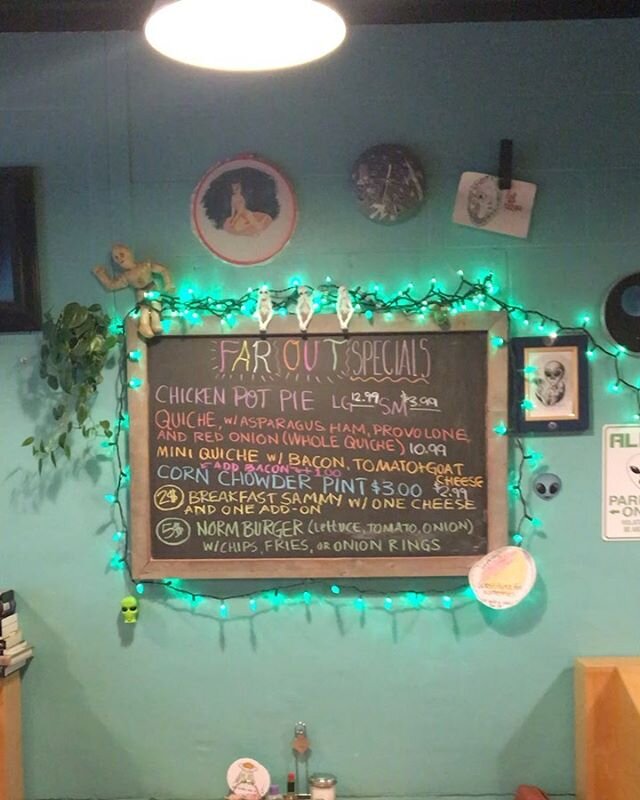 FAR OUT SPECIALS
CHICKEN POT PIE LG 12.99 SM $3.99
QUICHE, W/ASPARAGUS HAM, PROVOLONE,
AND RED ONION (WHOLE QUICHE) 10.99
MINI QUICHE W/ BACON, TOMATO+GOAT
CHEESE
$2.99
ADD BACON + 1.00
CORN CHOWDER PINT $3.00
2$ BREAKFAST SAMMY W/ ONE CHEESE
AND ONE ADD-ON
5$ NORM BURGER (LETTUCE, TOMATO, ONION)
W/CHIPS, FRIES, OR ONION RINGS
AL
PAR
ON